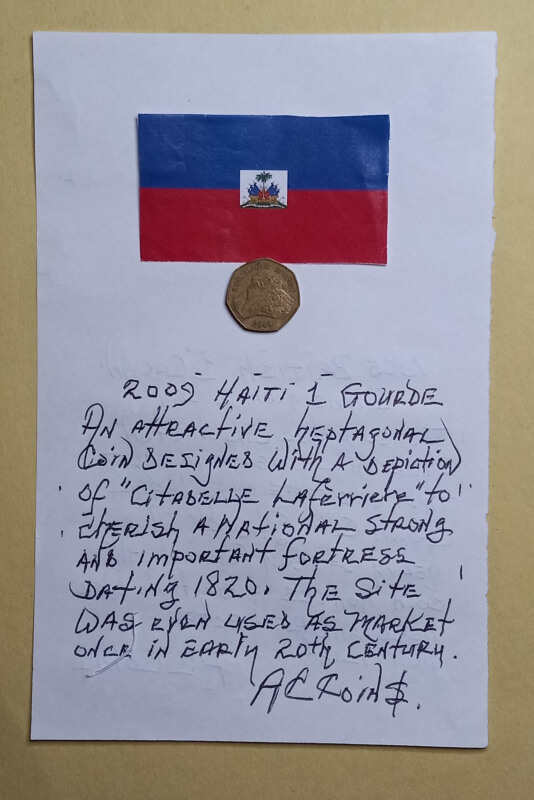 2009
2009 HAITI 1 GOURDE
AN ATTRACTIVE heptagonal
COIN DESIGNED WITH A DEPICTION
of "CITADELLE LAFERRIERE" to
CHERISH A NATIONAL STRONG
AND IMPORTANT FORTRESS
DATING 1820. THE SITE
WAS EVEN USED AS MARKET
ONCE IN EARLY 20th CENTURY.
ACCoin$.